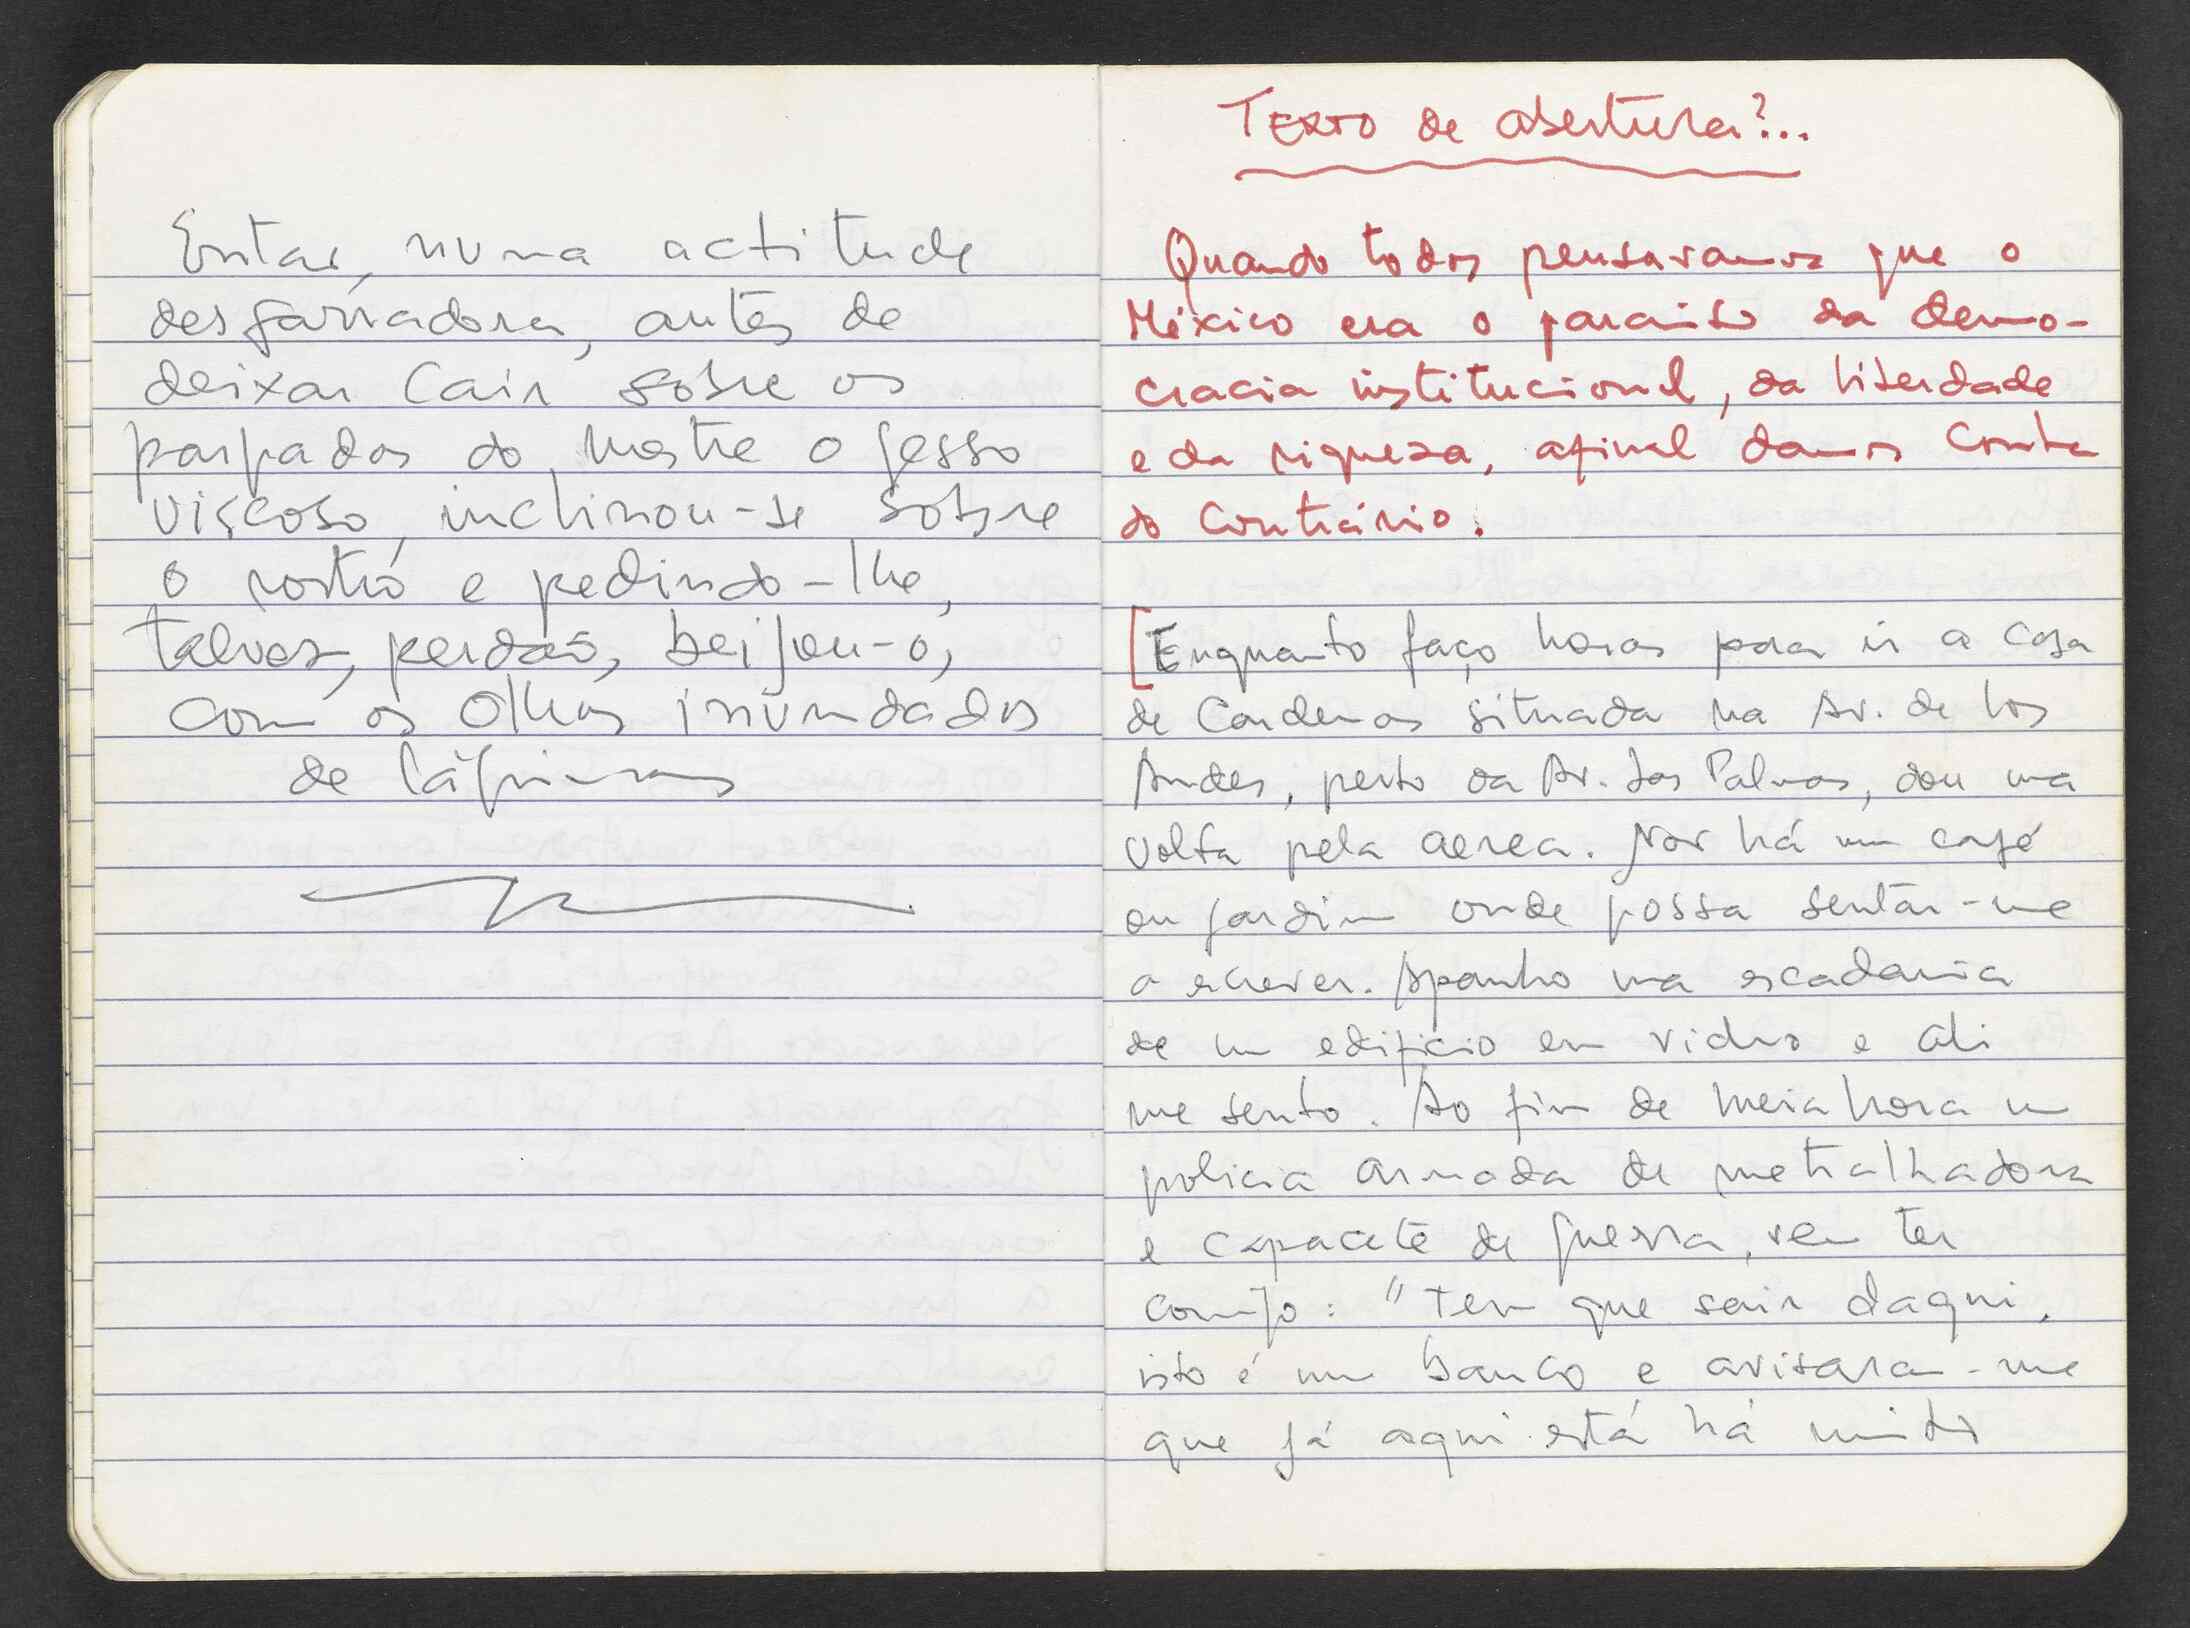 Entar, numa actitude
desgarradora, antes de
deixar cair sobre os
parpados do Mestre o gesso
viscoso, inclinou-se sobre
o rostro e pedindo-lhe,
talvez, perdão, beijou-o,
com os olhos inundados
de lágrimas
Texto de abertura?...
Quando todos pensavamos que o
México era o paraiso da demo-
cracia institucional, da liberdade
e da riqueza, afinal damos conta
do contrário.
[Enquanto faço horas para ir a casa
de Cardenas situada na Av. de los
Andes, perto da Av. das Palmas, dou uma
volta pela aerea. Não há um café
ou jardim onde possa sentar-me
a escrever. Apanho uma escadaria
de um edificio em vidro e ali
me sento. Ao fim de meia hora um
policia armada de metralhadora
e capacete de guerra, vem ter
comigo: "Tem que sair daqui,
isto é um banco e avisaram-me
que já aqui está há muito